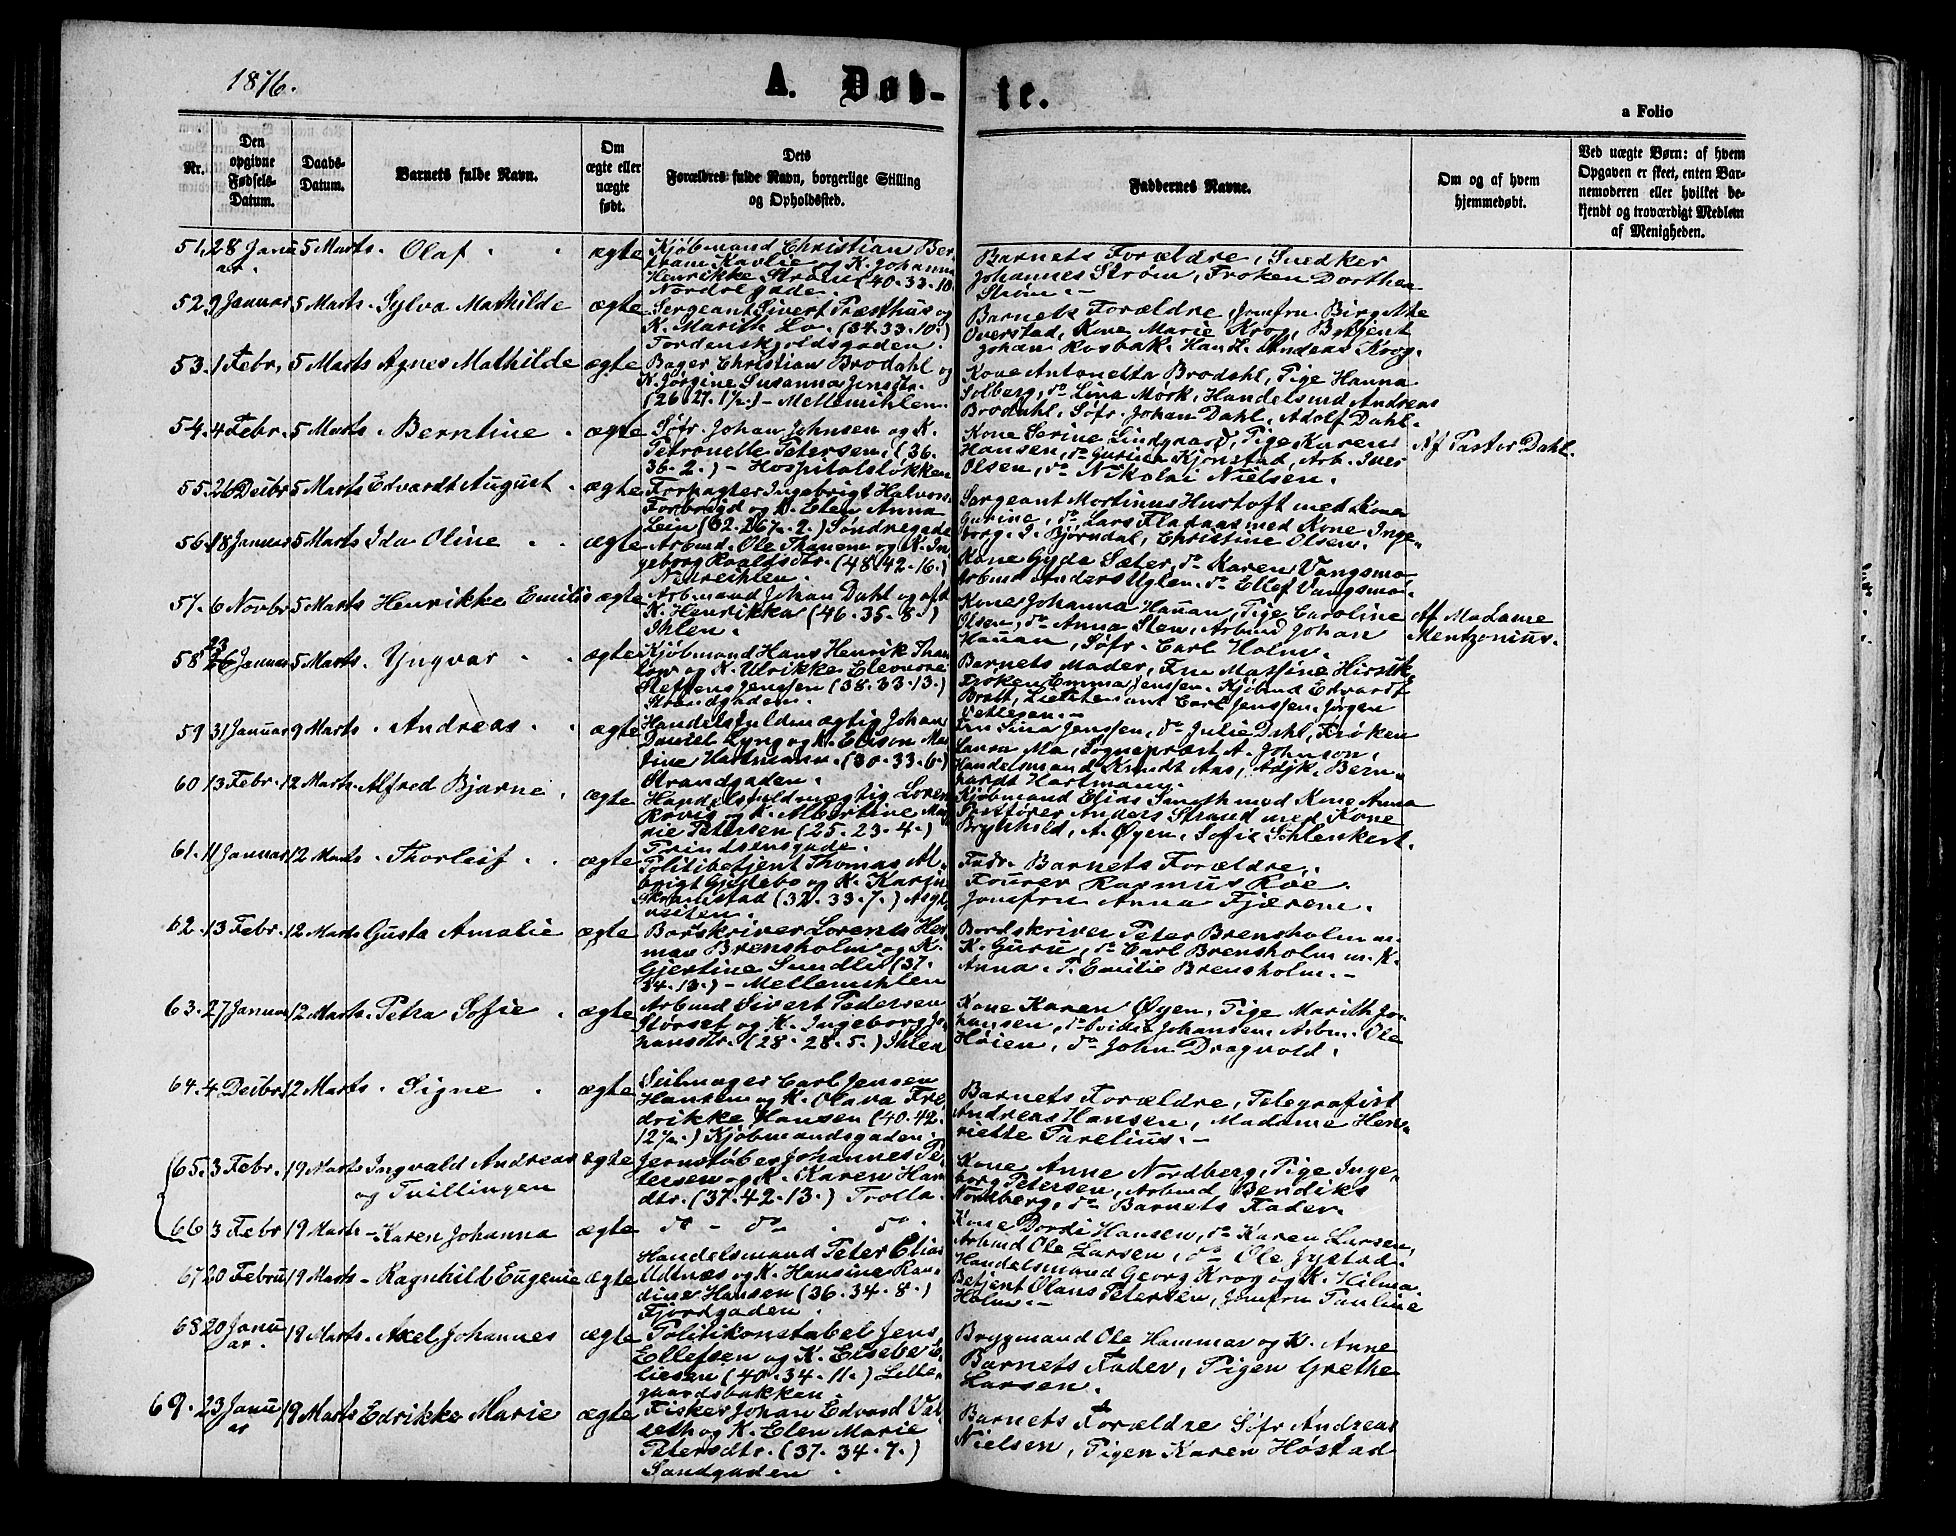 1876.
A. Døb-
te.
a Folio
Nr.
Den opgivne Fødsels-Datum.
Daabs-Datum.
Barnets fulde Navn.
Om ægte eller uægte født.
Dets Forældres fulde Navn, borgerlige Stilling og Opholdssted.
Faddernes Navne.
Om og af hvem hjemmedøbt.
Ved uægte Børn: af hvem Opgaven er skeet, enten Barnemoderen eller hvilket bekjendt og troværdigt Medlem af Menigheden.
51. 28 Janu ar. 5 Marts. Olaf ægte
Kjøbmand Christian Ber
tram Kavlie og K. Johanna
Henrikke Strøm (40-33-10
Nordregade.
Barnets Forældre, Snedker
Johannes Strøm, Frøken Dorthea
Strøm.
52. 9 Januar 5 Marts. Sylva Mathilde ægte
Sergeant Sivert Præsthus og
K. Marith Lo. (34.33.10.)
Tordenskjoldsgaden.
Barnets Forældre, Jomfru Birgitte
Overstad, Kone Marie Krog, Betjent
Johan Rosbak. Handl. Andreas Krog.
53. 1 Febr. 5 Marts Agnes Mathilde ægte
Bager Christian Brodahl og
K. Jørgine Susanna Jensdtr.
(26.27.1½.) - Mellemihlen.
Kone Antonetta Brodahl, Pige Hanna
Solberg, do Lina Mørk, Handelsmd Andreas
Brodahl, Søfr. Johan Dahl, Adolf Dahl.
54. 4 Febr. 5 Marts. Berntine ægte
Søfr. Johan Johnsen og K.
Petronelle Petersen, (36.
36-2.) - Hospitalsløkken
Kone Serine Lindgaard, Pige Karen
Hansen, do Gurine Kjønstad, Arb. Iver
Olsen, do Nikolai Nielsen.
Af Pastor Dahl.
55. 26 Decbr 5 Marts Edvardt August ægte
Forpagter Ingebrigt Halvors.
Forbrigd og K. Elen Anna
Lein (32.26½.2.) Søndregade
Sergeant Mortinus Hustoft med Kone
Gurine, do Lars Fladaas med Kone Inge-
borg. I. Bjørndal, Christine Olsen.
56. 18 Januar 5 Marts Ida Oline ægte
Arbmd. Ole Thanem og K. In
geborg Roaldsdtr. (48.42-16.)
Nedreihlen.
Kone Gyda Sæter, do Karen Vangsmo
Arbmd Anders Uglen. do Ellef Vangsmo.
57. 6 Novbr 5 Marts Henrikke Emilie ægte
Arbmand Johan Dahl og
K. Henrikka (46.35.8.)
Ihlen.
Kone Johanna Hauan, Pige Caroline
Olsen, do Anna Sten, Arbmd Johan
Hauan, Søfr. Carl Holm.
Af Madame
Mentzonius.
58 26 Januar 5 Marts. Yngvar ægte
Kjøbmand Hans Henrik Than
low og K. Ulrikke Eleonore
Steffens Jenssen (38.33.13.)
Strandgaden.
Barnets Moder, Fru Massine Hirsch,
Frøken Emma Jenssen. Kjøbmd Edvardt
Bratt, Lieutenant Carl Jenssen. Jørgen
Tetlesen.
59 31 Januar 9 Marts. Andreas ægte
Handelsfuldmægtig Johan
Daniel Lyng og K. Elison Mar
tine Hartmann. (30.33.6.)
Strandgaden.
Fru Lina Jenssen, do Julie Dahl, Frøken
Laura Ma, Sognepræst A. Johnson,
Handelsmand Knudt Aas, Bern-
hardt Hartmann.
60 13 Febr. 12 Marts. Alfred Bjarne ægte
Handelsfuldmægtig Loren
Rovig og K. Albertine Ma
rie Petersen (25.23.4.)
Prindsensgade.
Kjøbmand Elias Smith med Kone Anna
Postfører Anders Strand med Kone
Brynhild, A. Øyen, Sofie Schlenkert.
61. 11 Januar 12 Marts. Thorleif ægte
Politibetjent Thomas Al-
brigt Gjellebo og K. Karjn
Skramstad (32.33.7.) Asyl
veiten.
Fadr. Barnets Forældre.
Fourer Rasmus Roe.
Jomfru Anna Fjærem.
62. 13 Febr. 12 Marts Gusta Amalie ægte
Borskriver Lorents Her
man Brensholm og K.
Gjertine Sundli (37.
34.13.) - Mellemihlen
Bordskriver Peter Brensholm m.
K. Guru, do Carl Brensholm m. K.
Anna. P. Emilie Brensholm.
63. 27 Januar 12 Marts. Petra Sofie ægte
Arbmd Sivert Pedersen
Størset og K. Ingeborg Jo
hansdtr. (28-28-5.) Ihlen
Kone Karen Øyen, Pige Marith Jo-
hansen, do Johansen. Arbm. Ole
Høien, do John Dragvold.
64. 4 Decbr 12 Marts. Signe ægte
Seilmager Carl Jensen
Hansen og K. Olava Fre
drikke Hansen (40.42.
12½.) Kjøbmandsgaden.
Barnets Forældre, Telegrafist
Andreas Hansen, Madame Hen-
riette Parelius.
65. 3 Febr. 19 Marts Ingvald Andreas ægte
og Tvillingen
Jernstøber Johannes Pe
tersen og K. Karen Han
dtr. (37.42.13.) Trolla.
Kone Anne Nordberg, Pige Inge-
borg Petersen, Arbmd Bendiks
Nordberg, do Barnets Fader.
66 3 Febr 19 Marts - Karen Johanna ægte
do - do - do
Kone Dordi Hansen, do Karen Larsen,
Arbmd Ole Larsen, do Ole Jystad.
67 20 Febru 19 Marts - Ragnhild Eugenie ægte
Handelsmand Peter Elias
Udtnæs og K. Hansine Ran
dine Hansen (36-34-8.)
Fjordgaden.
Handelsmand Georg Krog og K. Hilma.
Betjent Olaus Petersen, Jomfru Pauline
Holm.
68 20 Janu ar. 19 Marts. Axel Johannes ægte
Politikonstabel Jens
Ellefsen og K. Elsebe E
liesen (40-34-11.) Lille-
gaardsbakken.
Brygmand Ole Hammer og K. Anne
Barnets Fader, Pigen Grethe
Larsen.
69. 23 Janu ar 19 Marts Edrikke Marie ægte
Fisker Johan Edvard Val
seth og K. Elen Marie
Petersdtr. (37.34.7.)
Sandgaden.
Barnets Forældre Søfr Andreas
Nielsen, Pigen Karen Høstad